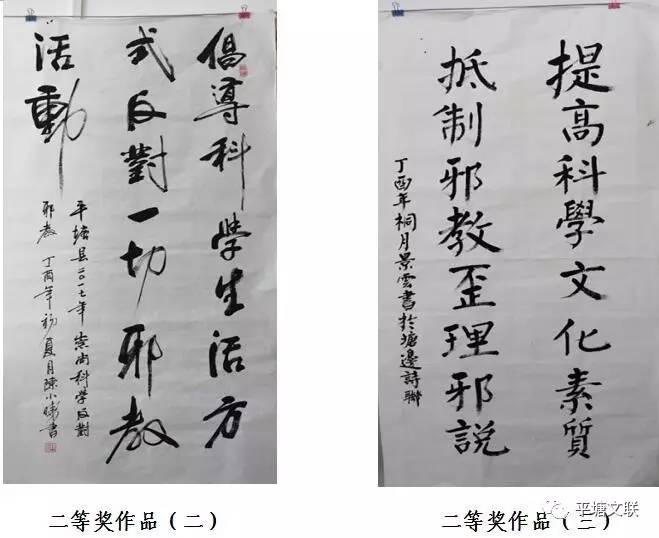 倡導科學生活方
式反對一切邪教
活動
平塘县二〇一七年崇尚科学反對
邪教 丁酉年初夏月陳小衛書
提高科學文化素質
抵制邪教歪理邪說
丁酉年桐月景雲書於塘邊詩聯
二等奖作品（二）
二等奖作品（三）
平塘文联